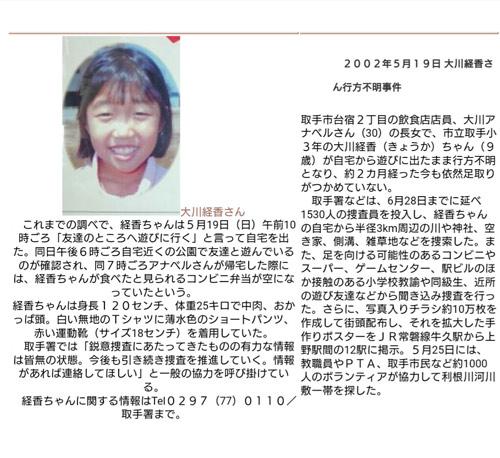 ２００２年５月１９日 大川経香さ
ん行方不明事件
大川経香さん
これまでの調べで、経香ちゃんは５月19日（日）午前10
時ごろ「友達のところへ遊びに行く」と言って自宅を出
た。同日午後６時ごろ自宅近くの公園で友達と遊んでいる
のが確認され、同７時ごろアナベルさんが帰宅した際に
は、経香ちゃんが食べたと見られるコンビニ弁当が空にな
っていたという。
経香ちゃんは身長１２０センチ、体重25キロで中肉、おか
っぱ頭。白い無地のＴシャツに薄水色のショートパンツ、
赤い運動靴（サイズ18センチ）を着用していた。
取手署では「鋭意捜査にあたってきたものの有力な情報
は皆無の状態。今後も引き続き捜査を推進していく。情報
があれば連絡してほしい」と一般の協力を呼び掛けてい
る。
経香ちゃんに関する情報はTel０２９７（77）０１１０／
取手署まで。
取手市台宿２丁目の飲食店店員、大川ア
ナベルさん（30）の長女で、市立取手小
３年の大川経香（きょうか）ちゃん（９
歳）が自宅から遊びに出たまま行方不明
となり、約２カ月経った今も依然足取り
がつかめていない。
取手署などは、6月28日までに延べ
1530人の捜査員を投入し、経香ちゃん
の自宅から半径3km周辺の川や神社、空
き家、側溝、雑草地などを捜索した。ま
た、足を向ける可能性のあるコンビニや
スーパー、ゲームセンター、駅ビルのほ
か接触のある小学校教諭や同級生、近所
の遊び友達などから聞き込み捜査を行っ
た。さらに、写真入りチラシ約10万枚を
作成して街頭配布し、それを拡大した手
作りポスターをＪＲ常磐線牛久駅から上
野駅間の12駅に掲示。５月25日には、
教職員やＰＴＡ、取手市民など約1000
人のボランティアが協力して利根川河川
敷一帯を探した。